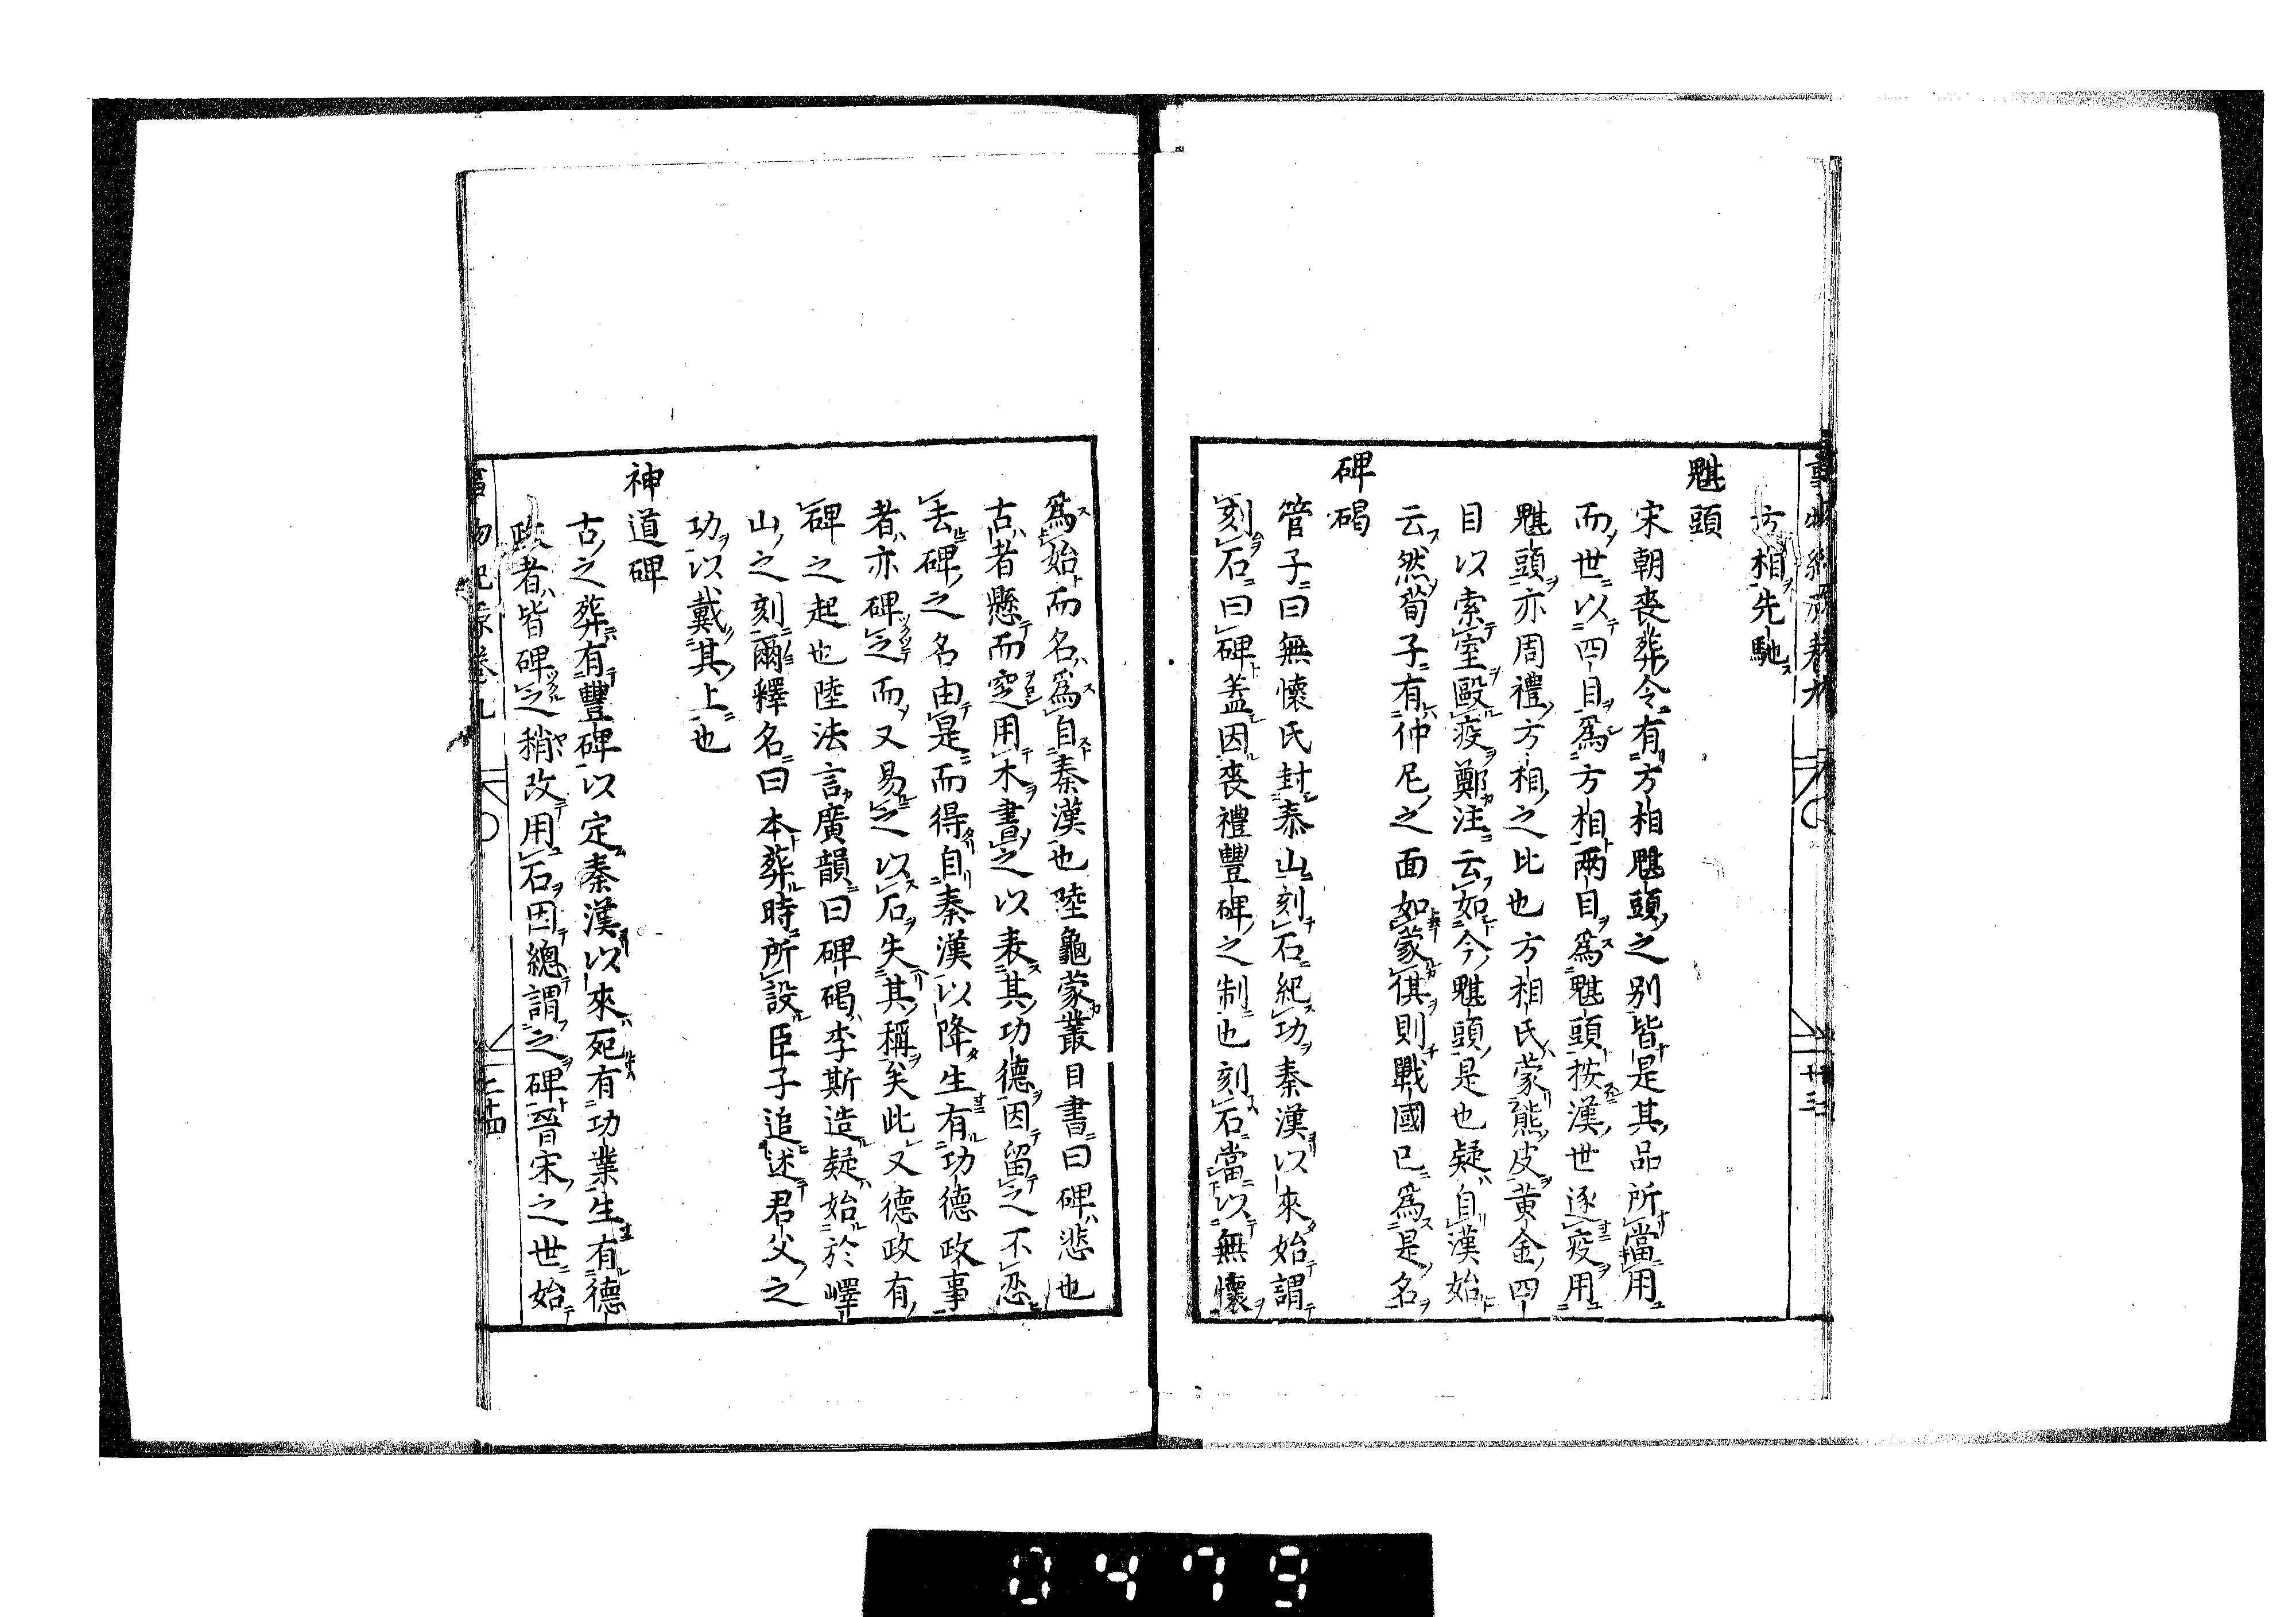 事物紀原卷九
廿三
方相先馳
魌頭
宋朝喪葬令有方相魌頭之别皆是其品所當用
而世以四目爲方相兩目爲魌頭按漢世逐疫用
魌頭亦周禮方相之比也方相氏蒙熊皮黄金四
目以索室毆疫鄭注云如今魌頭是也疑自漢始
云然荀子有仲尼之面如蒙倛則戰國已爲是名
碑碣
管子曰無懷氏封泰山刻石紀功秦漢以來始謂
刻石曰碑蓋因喪禮豐碑之制也刻石當以無懷
爲始而名爲自秦漢也陸龜蒙叢目書曰碑悲也
古者懸而窆用木書之以表其功德因留之不忍
去碑之名由是而得自秦漢以降生有功德政事
者亦碑之而又易之以石失其稱矣此又德政有
碑之起也陸法言廣韻曰碑碣李斯造疑始於嶧
山之刻爾釋名曰本葬時所設臣子追述君父之
功以戴其上也
神道碑
古之葬有豐碑以定秦漢以來死有功業生有德
政者皆碑之稍改用石因總謂之碑晉宋之世始
事物紀原卷九
二十四
0479